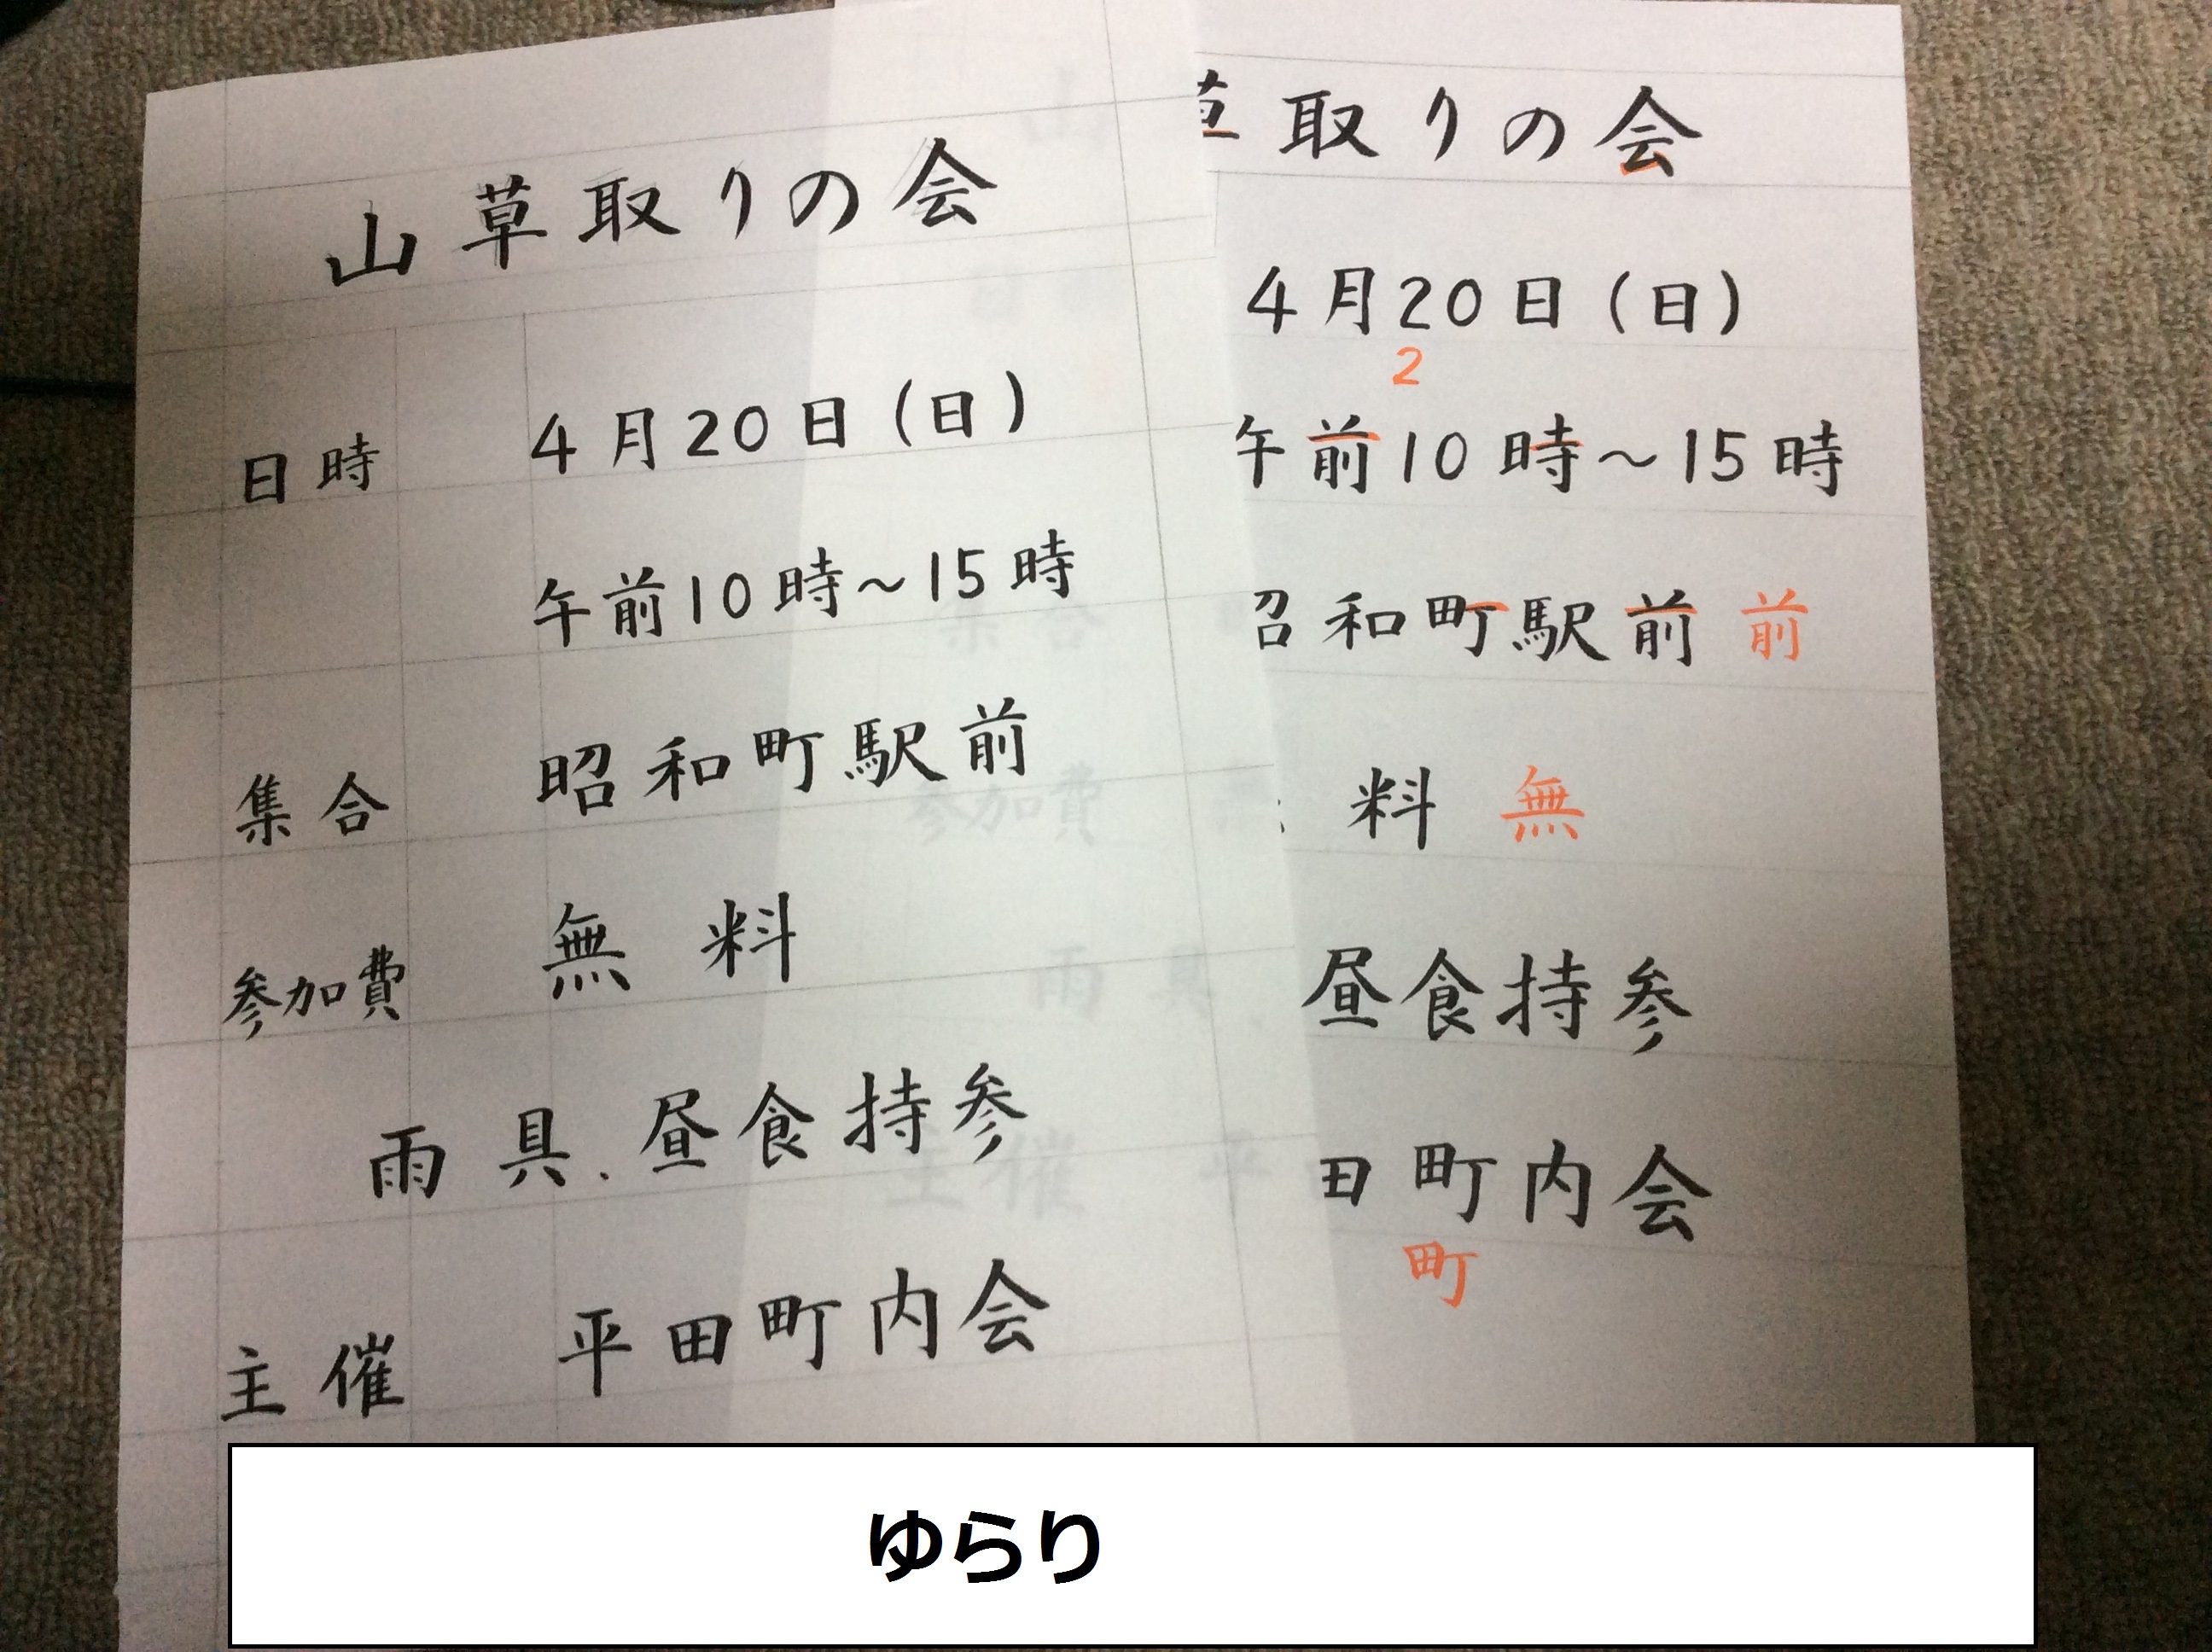 山草取りの会
日時 4月20日(日)
午前10時～15時
集合 昭和町駅前
参加費 無料
雨具、昼食持参
主催 平田町内会
草取りの会
4月20日(日)
2
午前10時～15時
昭和町駅前 前
料 無
昼食持参
田町内会
町
ゆらり